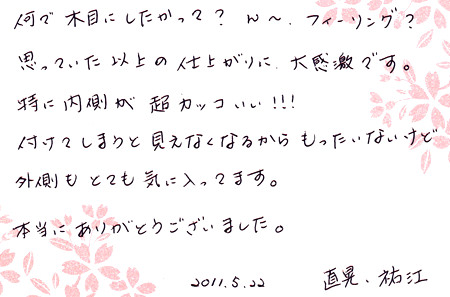 何で木目にしたかって？ん〜、フィーリング？
思っていた以上の仕上がりに、大感激です。
特に内側が超カッコいい!!!
付けてしまうと見えなくなるからもったいないけど
外側もとても気に入ってます。
本当にありがとうございました。
2011.5.22 直晃、祐江